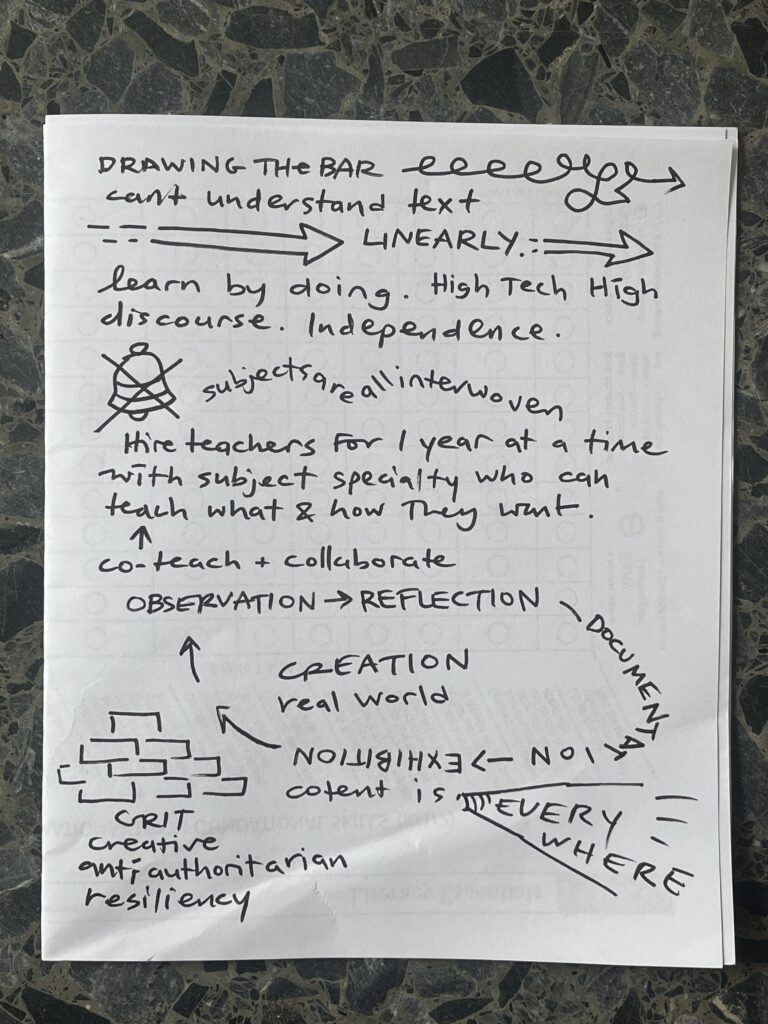 DRAWING THe BAR
can't understand text
LINEARLY.
learn by doing. High Tech High
discourse. Independence.
subjects are all interwoven
Hire teachers For 1 year at a time
with subject specialty who can
teach what & how They want.
co-teach + collaborate
OBSERVATION → REFLECTION
DOCUMENTATION → EXHIBITION
CREATION
real world
cotent is EVERY
WHERE
GRIT
creative
anti authoritarian
resiliency
Literacy Essentials